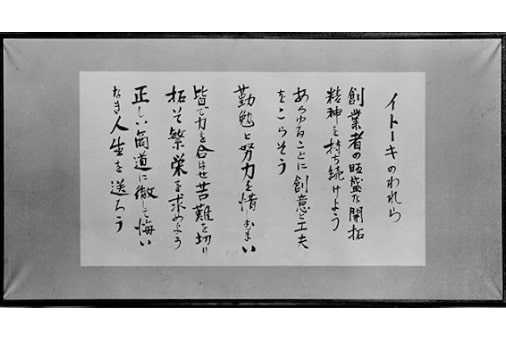 イトーキのわれら
創業者の旺盛な開拓
精神を持ち続けよう
あらゆることに創意と工夫
をこらそう
勤勉と努力を惜しむまい
皆で力を合はせ苦難を切り
拓いて繁栄を求めよう
正しい商道に徹して悔い
なき人生を送ろう